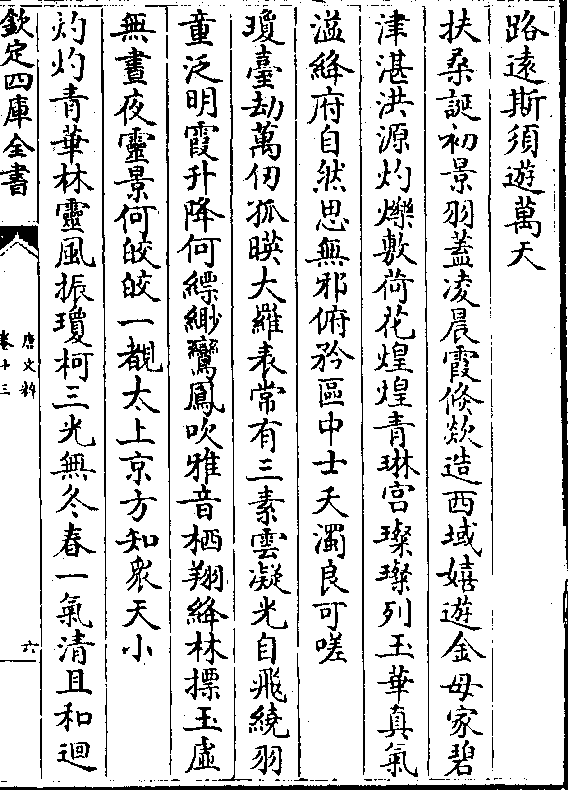 路遠斯須遊萬天
扶桑誕初景羽蓋凌晨霞倏欻造西域嬉遊金母家碧
津湛洪源灼爍敷荷花煌煌青琳宫璨璨列玉華真氣
溢絳府自然思無邪俯矜區中士夭濁良可嗟
瓊臺劫萬仞孤映大羅表常有三素雲凝光自飛繞羽
童泛明霞升降何縹緲鸞鳳吹雅音栖翔絳林摽玉虚
無晝夜靈景何皎皎一覩太上京方知衆天小
灼灼青華林靈風振瓊柯三光無冬春一氣清且和迴
欽定四庫全書
唐文粹
卷十三
六